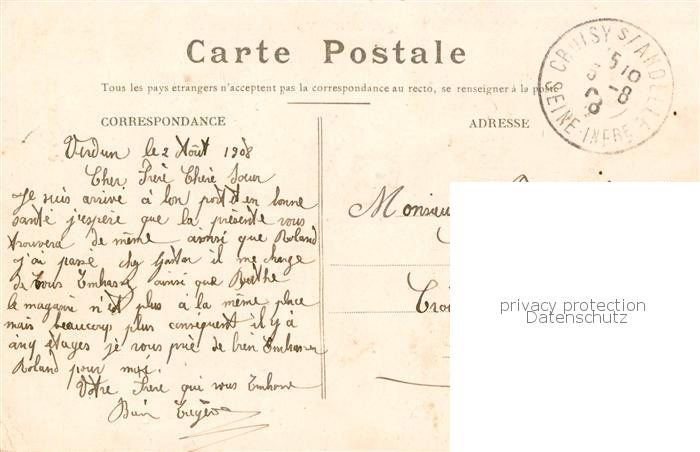 Carte Postale
Tous les pays etrangers n'acceptent pas la correspondance au recto, se renseigner à la poste
CORRESPONDANCE
ADRESSE
CROISY S/ANDELLE
SEINE-INFRE
5 10
-8
08
Verdun le 2 Août 1908
Cher Frère Chère Soeur
Je suis arrivé à bon port et en bonne
santé j'espère que la présente vous
trouvera de même ainsi que Roland
j'ai passé chez Gaston il me charge
de vous Embrasser ainsi que Berthe
le magasin n'est plus à la même place
mais beaucoup plus conséquent il y à
cinq étages je vous prie de bien Embrasser
Roland pour moi.
Votre Frère qui vous Embrasse
Bien
Monsieu
Croi
privacy protection
Datenschutz